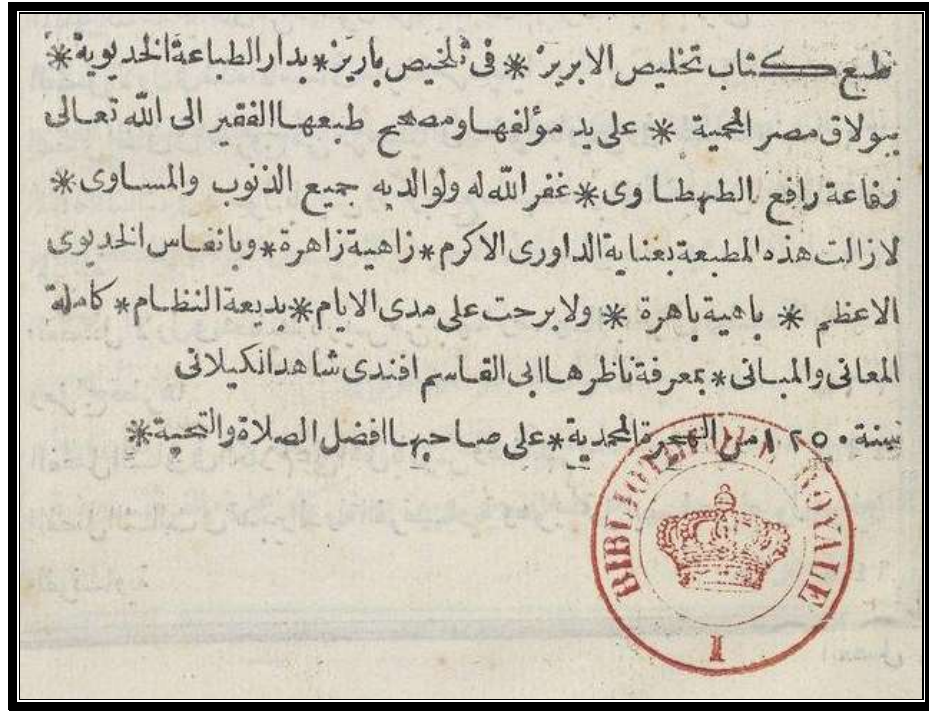 طبع كتاب تخليص الابريز * فى تلخيص باريز * بدار الطباعة الخديوية *
ببولاق مصر المحمية * على يد مؤلفها ومصحح طبعها الفقير الى الله تعالى
رفاعة رافع الطهطاوى * غفر الله له ولوالديه جميع الذنوب والمساوى *
لازالت هذه المطبعة بعناية الداورى الاكرم * زاهية زاهرة * وبانفاس الخديوى
الاعظم * باهية باهرة * ولابرحت على مدى الايام * بديعة النظام * كاملة
المعانى والمبانى * بمعرفة ناظرها ابى القاسم افندى شاهد انكيلانى
بسنة ١٢٥٠ من الهجرة المحمدية * على صاحبها افضل الصلاة والتحية *
BIBLIOTHEQUE ROYALE
I